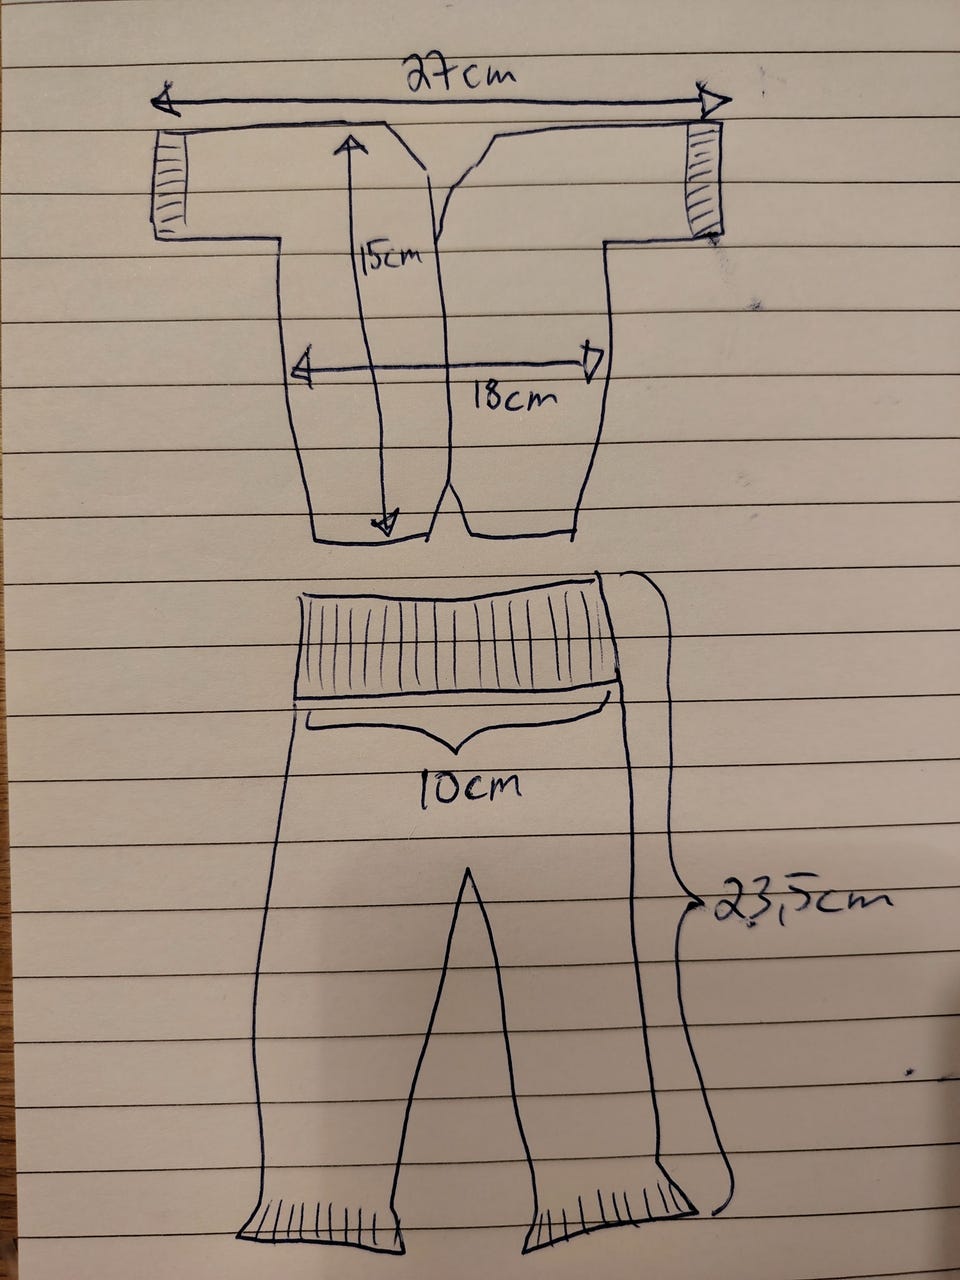 27cm
15cm
18cm
10cm
23,5cm